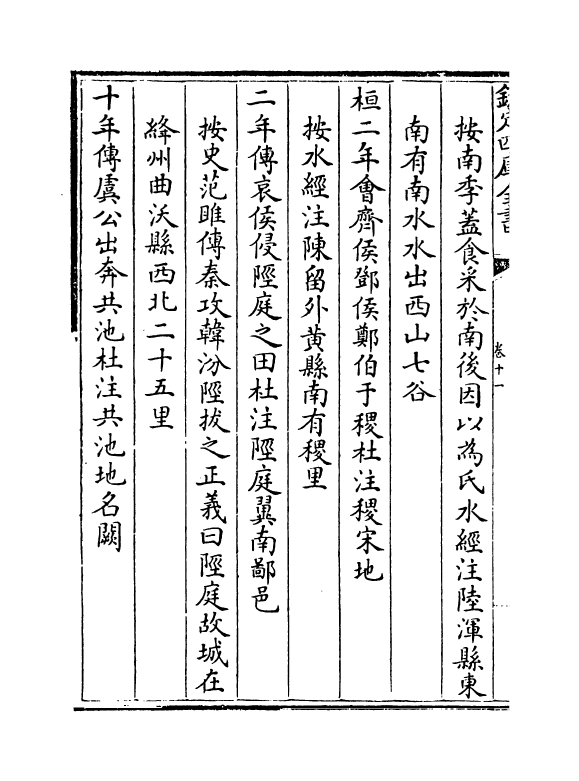 欽定四庫全書
卷十一
按南季蓋食采於南後因以為氏水經注陸渾縣東
南有南水水出西山七谷
桓二年會齊侯鄧侯鄭伯于稷杜注稷宋地
按水經注陳留外黃縣南有稷里
二年傳哀侯侵陘庭之田杜注陘庭翼南鄙邑
按史范雎傳秦攻韓汾陘拔之正義曰陘庭故城在
絳州曲沃縣西北二十五里
十年傳虞公出奔共池杜注共池地名闕